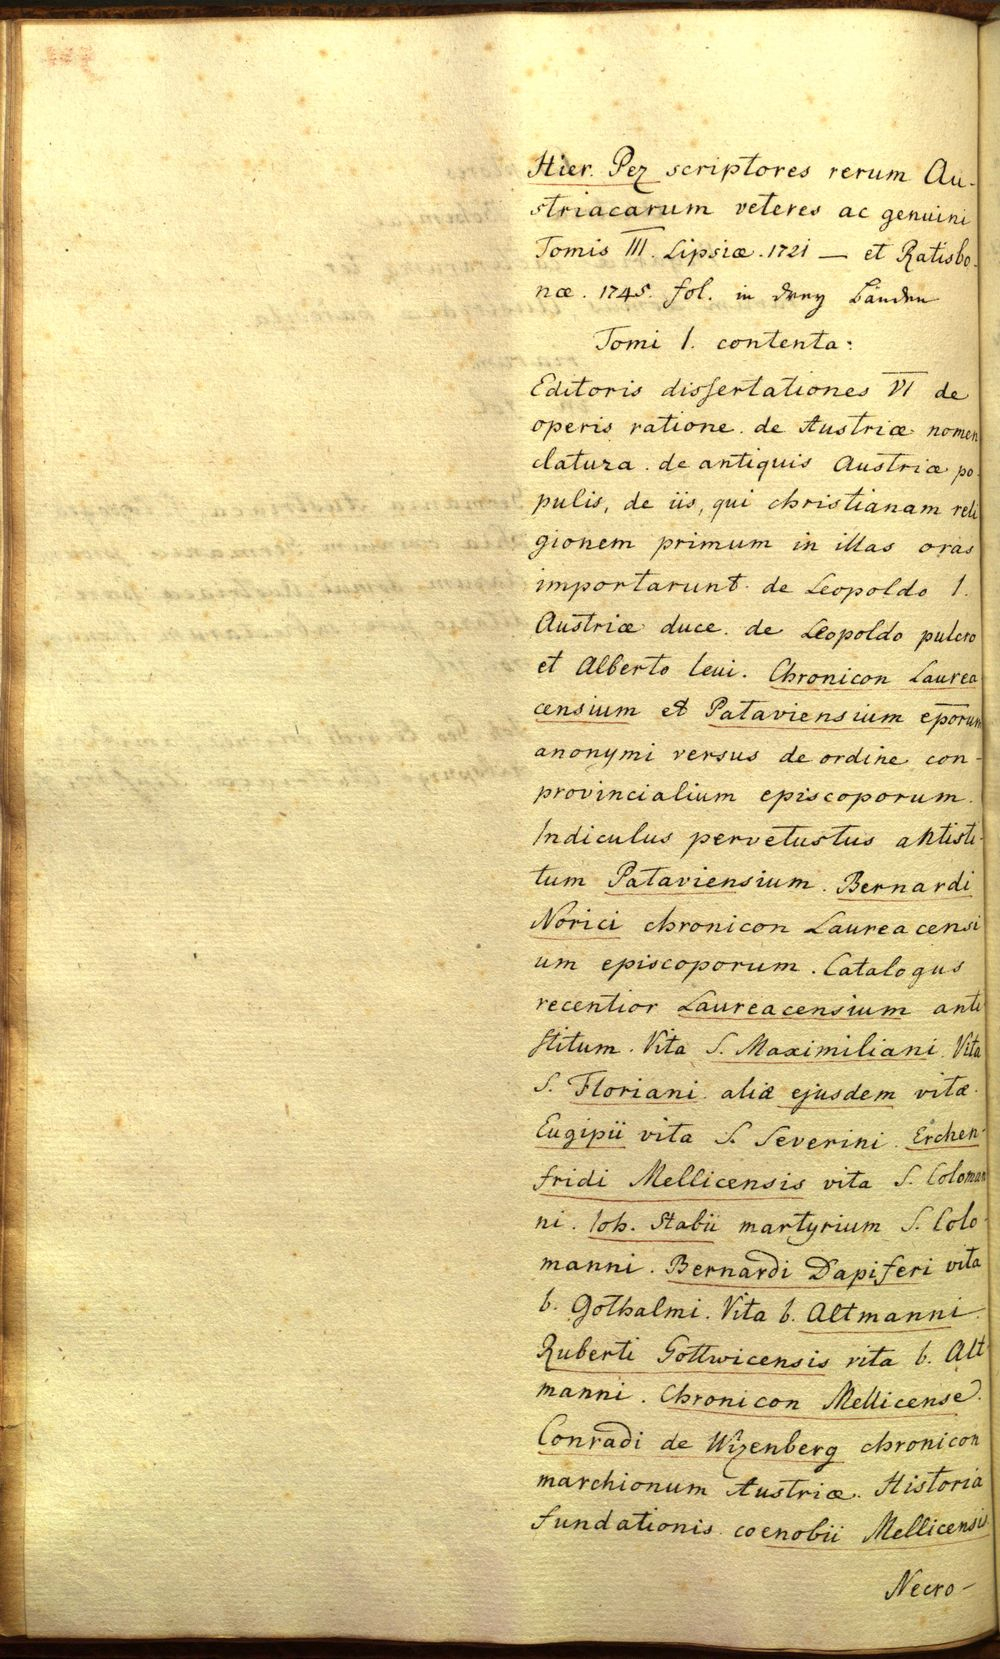 Hier. Pez scriptores rerum Au-
striacarum veteres ac genuini
Tomis III. Lipsiæ. 1721 — et Ratisbo-
næ. 1745. fol. in drey Bänden
Tomi I. contenta:
Editoris dissertationes VI de
operis ratione. de Austriæ nomen
clatura. de antiquis Austriæ po-
pulis, de iis, qui christianam reli
gionem primum in illas oras
importarunt. de Leopoldo I.
Austriæ duce. de Leopoldo pulcro
et Alberto leui. Chronicon Laurea
censium et Pataviensium eporum
anonymi versus de ordine con-
provincialium episcoporum.
Indiculus pervetustus antisti-
tum Pataviensium. Bernardi
Norici chronicon Laureacensi
um episcoporum. Catalogus
recentior Laureacensium anti
stitum. Vita S. Maximiliani. Vita
S. Floriani. aliæ ejusdem vitæ.
Eugipii vita S. Severini. Erchen-
fridi Mellicensis vita S. Coloman
ni. Ioh. Stabii martyrium S. Colo-
manni. Bernardi Dapiferi vita
b. Gothalmi. Vita b. Altmanni.
Ruberti Gottwicensis vita b. Alt
manni. Chronicon Mellicense.
Conradi de Wizenberg chronicon
marchionum Austriæ. Historia
fundationis coenobii Mellicensis
Necro-